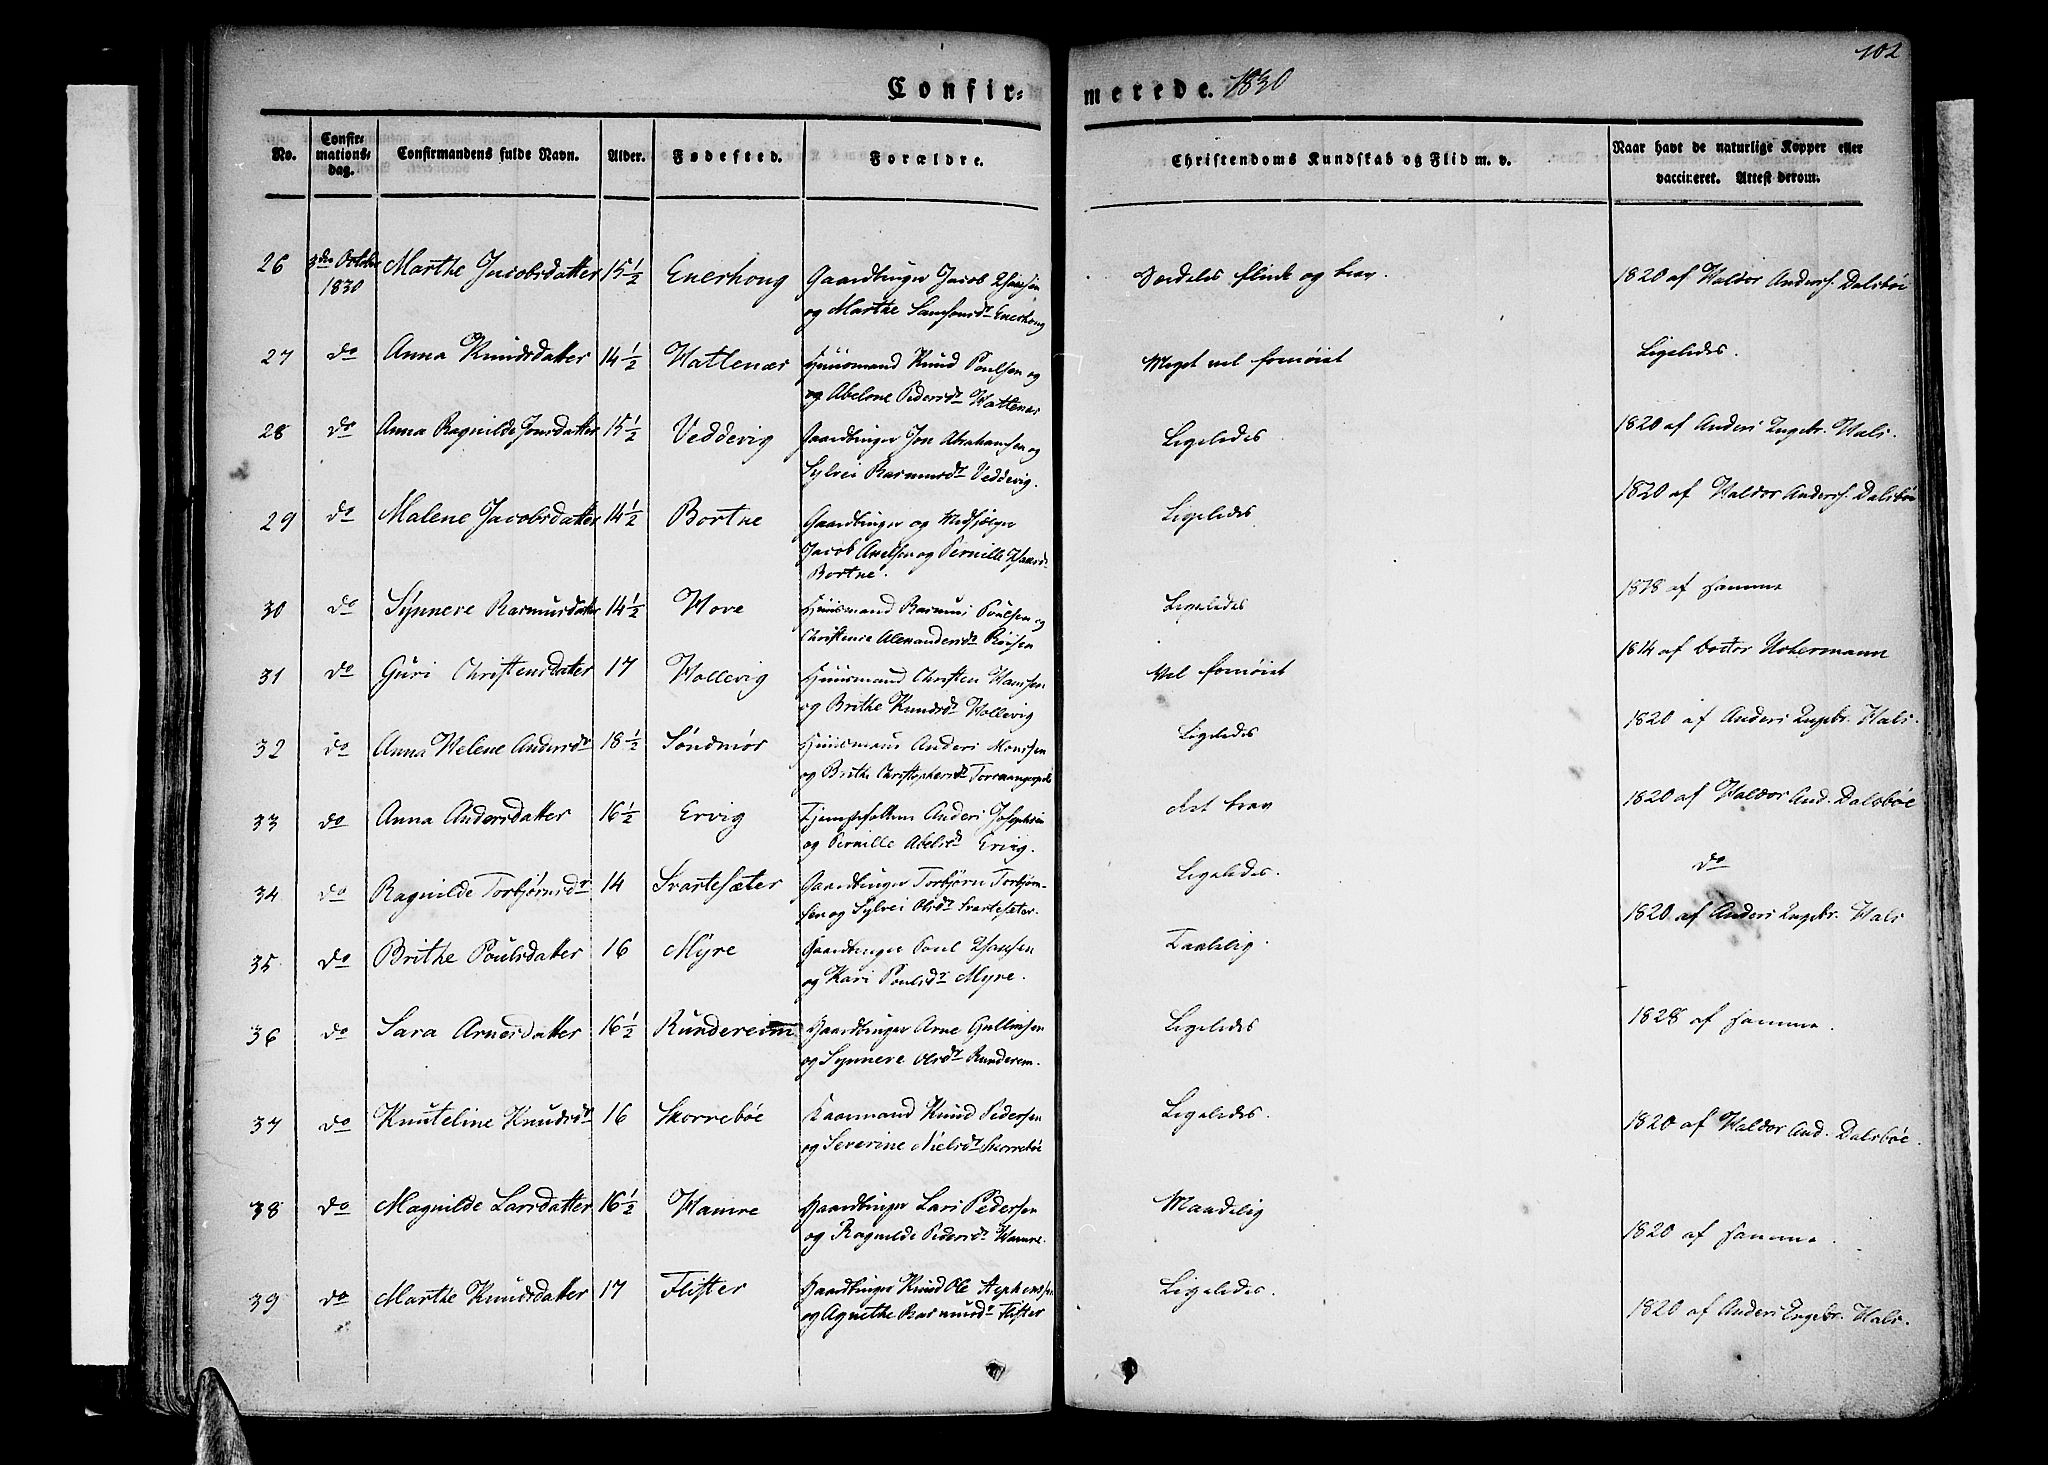 102
Confir= merede. 1830
No. Confir=mations=dag. Confirmandens fulde Navn. Alder. Fødested. Forældre. Christendoms Kundskab og Flid m. v. Naar havt de naturlige Kopper eller vaccineret. Attest derom.
26 3die October 1830 Marthe Jacobsdatter 15 1/2 Enerhoug Gaardbruger Jacob Hansen og Marthe Samsonsdr Enerhoug Særdeles flink og brav. 1820 af Haldor Anders. Dalsbøe
27 do Anna Knudsdatter 14 1/2 Hattenær Huusmand Knud Poulsen og og Abelone Pedersdr Hattenær Meget vel fornøiet Ligeledes.
28 do Anna Ragnilde Jonsdatter 15 1/2 Veddevig Gaardbruger Jon Abrahamsen og Sylvei Rasmusdr Veddevig. Ligeledes 1820 af Anders Engebr. Hals.
29 do Malene Jacobsdatter 14 1/2 Bortne Gaardbruger og Medhjælper Jacob Axelsen og Pernille Hansdr Bortne. Ligeledes 1820 af Haldor Anders. Dalsbøe
30 do Synneve Rasmusdatter 14 1/2 Hove Huusmand Rasmus Poulsen og Christense Alexandersdr Ligeledes 1828 af samme
31 do Guri Christensdatter 17 Hollevig Huusmand Christen Hansen og Brithe Knudsdr Hollevig Vel fornøiet 1814 af Doctor Uchermann
32 do Anna Helene Andersdr 18 1/2 Søndmør Huusmand Anders Monssen og Brithe Christophersdr Ligeledes 1820 af Anders Engebr. Hals.
33 do Anna Andersdatter 16 1/2 Ervig Tjenestefolkene Anders Josephsen og Pernille Abelsdr Ervig. Ret brav 1820 af Haldor And. Dalsbøe
34 do Ragnilde Torbjørnsdr 14 Svartesæter Gaardbruger Torbjørn Torbjørn-sen og Sylvei Olsdr Svartesæter. Ligeledes. do
35 do Brithe Poulsdatter 16 Myre Gaardbruger Poul Hansen og Kari Poulsdr Myre. Taalelig. 1820 af Anders Engebr. Hals
36 do Sara Arnesdatter 16 1/2 Rundereim Gaardbruger Arne Gullicsen og Synneve Olsdr Runderem. Ligeledes 1828 af samme.
37 do Knuteline Knudsdr 16 Skorrebøe Knud Pedersen og Severine Nielsdr Skorrebøe Ligeledes. 1820 af Haldor And. Dalsbøe.
38 do Magnilde Larsdatter 16 1/2 Hamre Gaardbruger Lars Pedersen og Ragnilde Pedersdr Hamre. Maadelig 1820 af samme.
39 do Marthe Knudsdatter 17 Flister Gaardbruger Knud Ole Stephenssen og Agnethe Rasmusdr Flister Ligeledes. 1820 af Anders Engebr. Hals.